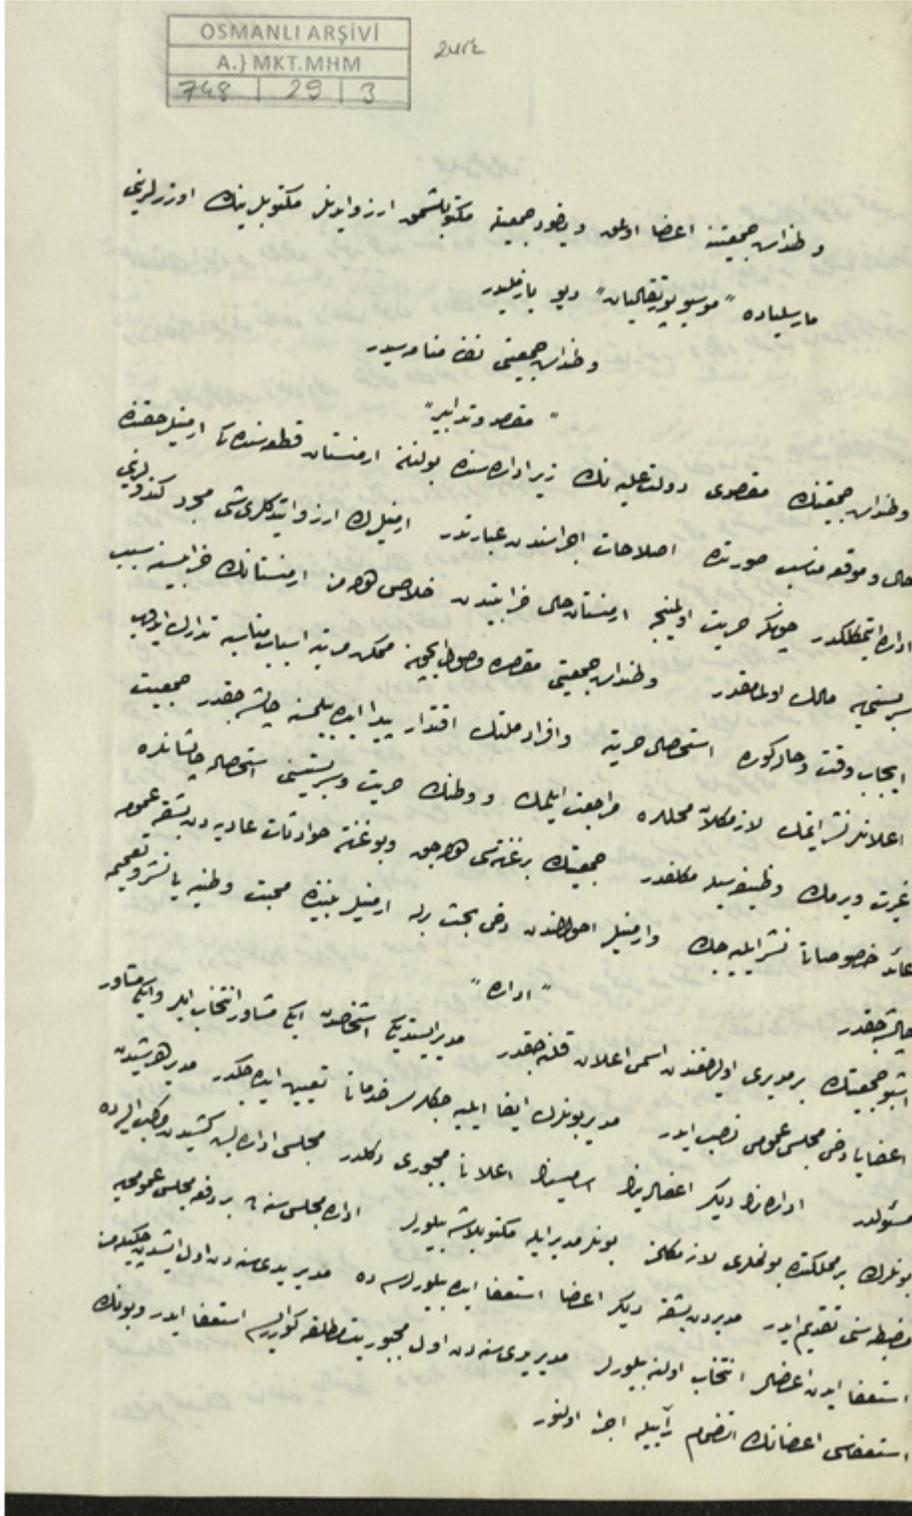 OSMANLI ARŞİVİ
A.} MKT.MHM
748 | 29 | 3
وطنداش جمعیتنه اعضا اولمق ویاخود جمعیتله مکتوبلشمق ارزو ایدنلر مکتوبلرینك اوزرلرینی
مارسلیاده "موسیو پورتقالیان" دیو یازملیدر
وطنداش جمعیتی نظامنامه سیدر
"مقصد و تدابیر"
وطنداش جمعیتنك مقصدی دولت علیه نك زیر اداره سنده بولنان ارمنستان قطعه سنده کی ارمنیلر حقنده
حال و موقعه مناسب صورتده اصلاحات اجراسندن عبارتدر ارمنیلرك ارزو ایتدکلری شی مجرد کندولرینی
اداره ایتمکلکدر چونکه حریت اولمینجه ارمنستان حال خرابیتدن خلاص اوله من ارمنستانك خرابیسنه سبب
سربستیه مالك اولمامقدر وطنداش جمعیتی مقصده وصول ایچون ممکن مرتبه اسباب مناسبه تدارك ایدوب
ایجاب وقت و حاله کوره استحصال حریته و افراد ملتك اقتدار پیدا ایده بیلمسنه چالیشه جقدر جمعیت
اعلاننامه لر نشر ایتمك لازم کلان محللره مراجعت ایلمك و وطنك حریت و سربستیتنی استحصاله چالیشانلره
غیرت ویرمك وظیفه سیله مکلفدر جمعیتك بر غزته سی اوله جق و بو غزته حوادثات عادیه دن بشقه عمومه
عائد خصوصاتی نشر ایلیه جك و ارمنیلر احوالندن دخی بحث ایله ارمنیلر بیننده محبت وطنیه یی نشر و تعمیمه
چالیشه جقدر
"اداره"
اشبو جمعیتك بر مدیری اوله جغندن اسمی اعلان قلنه جقدر مدیر ایستدیکی اشخاصدن ایکی مشاور انتخاب ایدر و ایکی مشاور
اعضایی دخی مجلس عمومی نصب ایدر مدیر بونلرك ایفا ایلیه جکلری خدماتی تعیین ایده جکدر مدیر هر شیدن
مسئولدر اداره نك دیکر اعضالرینك اسملرینك اعلانی مجبوری دکلدر مجلس اداره بش کشیدن مرکب ایسه ده
بونلرك بر مملکتده بولنملری لازم کلمز بونلر مدیر ایله مکتوبلاشه بیلورلر اداره مجلسی سنه ده بر دفعه مجلس عمومی یه
مضبطه سنی تقدیم ایدر مدیردن بشقه دیکر اعضا استعفا ایده بیلورلرسه ده مدیر یدی سنه دن اول ایشدن چکیله من
استعفا ایدن اعضالر انتخاب اولنه بیلورلر مدیر یدی سنه دن اول مجبوریت مطلقه کورلرسه استعفا ایدر و بونك
استعفاسی اعضانك انضمام رأییله اجرا اولنور